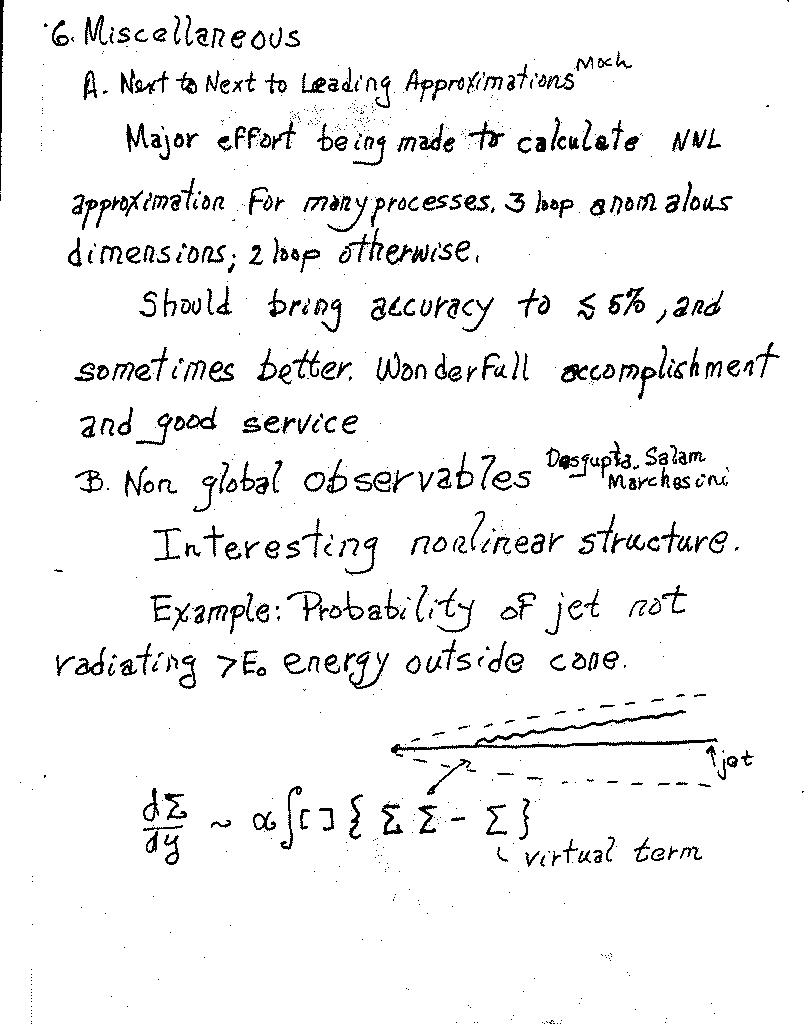 6. Miscellaneous
A. Next to Next to Leading Approximations Moch
Major effort being made to calculate NNL
approximation for many processes. 3 loop anomalous
dimensions; 2 loop otherwise.
Should bring accuracy to ≲ 5%, and
sometimes better. Wonderfull accomplishment
and good service
B. Non global observables Dasgupta, Salam
Marchesini
Interesting nonlinear structure.
Example: Probability of jet not
radiating >E₀ energy outside cone.
jet
dΣ/dy ~ α∫[ ]{ΣΣ - Σ}
virtual term